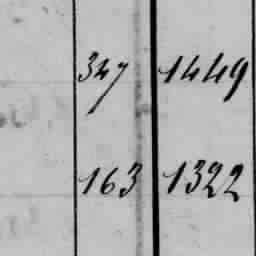 347 1449
163 1322